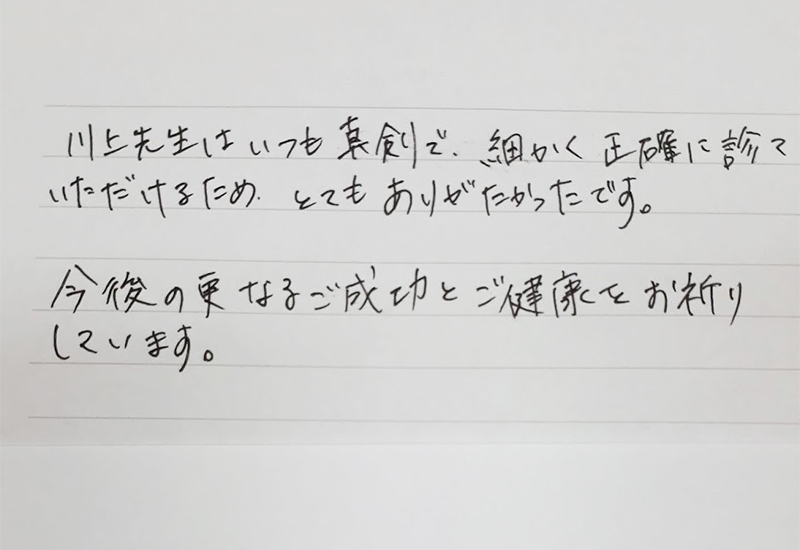 川上先生はいつも真剣で、細かく正確に診て
いただけるため、とてもありがたかったです。
今後の更なるご成功とご健康をお祈り
しています。